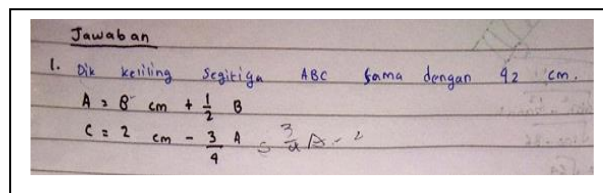 Jawaban
1. Dik keliling segitiga ABC sama dengan 92 cm.
A = 8 cm + 1/2 B
C = 2 cm - 3/4 A = 3/4 A - 2